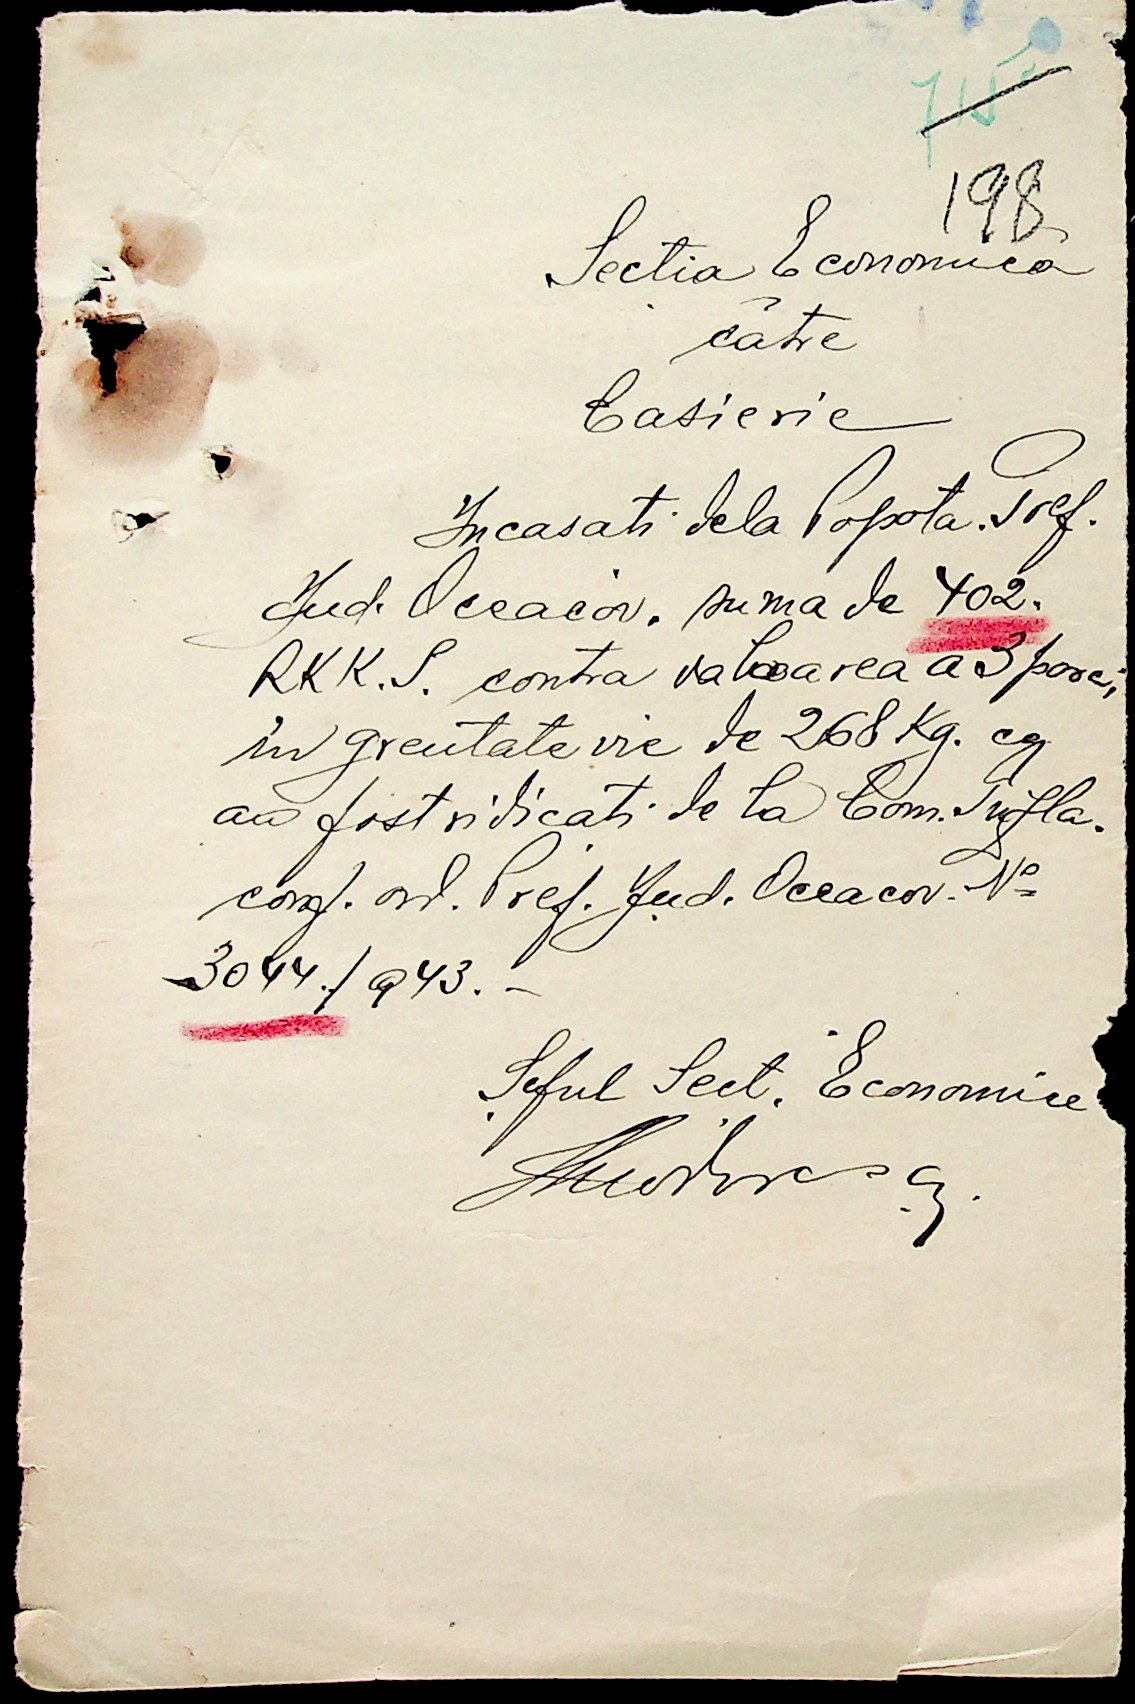 715
198
Sectia Economica
către
Casierie
Incasati dela Popota. Pref.
Jud. Oceacov. suma de 402.
RKK.S. contra valoarea a 3 porci,
in greutate vie de 268 Kg. ce
au fost ridicati de la Com.
conf. ord. Pref. Jud. Oceacov. No
3044./943. -
Șeful Sect. Economice